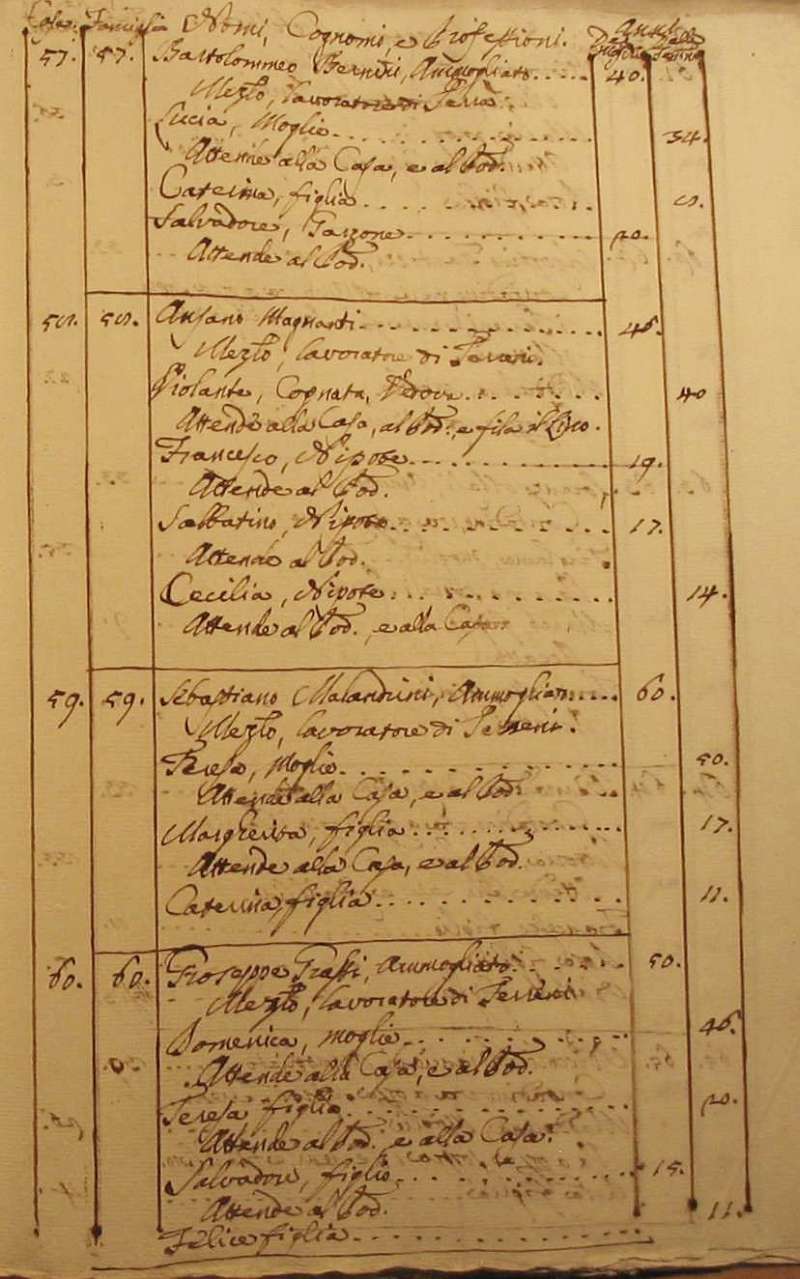 Case. Famiglie Nomi, Cognomi, e Professioni.
57. 57. Bartolommeo Bernini, Ammogliato 40.
Mezlo, lavoratore di Terra
Lucia, Moglie 34.
Attende alla Casa, e al Pod.
Caterina, figlia
Salvadore, Garzone 20.
Attende al Pod.
58. 58. Ansano Magnanti
Mezlo, lavoratore di Terreni.
Violante, Cognata, Vedova 40
Attende alla Casa, al Pod. e fila il Lino.
Francesco, Nipote 19.
Attende al Pod.
Sabbatino, Nipote 17.
Attende al Pod.
Cecilia, Nipote 14.
Attende al Pod. e alla Casa
59. 59. Sebastiano Malandrini, Ammogliato 60.
Mezlo, lavoratore di Terreni.
Teresa, Moglie 50.
Attende alla Casa, e al Pod.
Margherita, figlia 17.
Attende alla Casa, e al Pod.
Caterina, figlia 11.
60. 60. Gioseppe Grassi, Ammogliato 50.
Mezlo, lavoratore di Terreni
Domenica, moglie 46.
Attende alla Casa, e al Pod.
Teresa figlia 20.
Attende al Pod. e alla Casa.
Salvadore, figlio 15.
Attende al Pod.
Felice figlia 11.